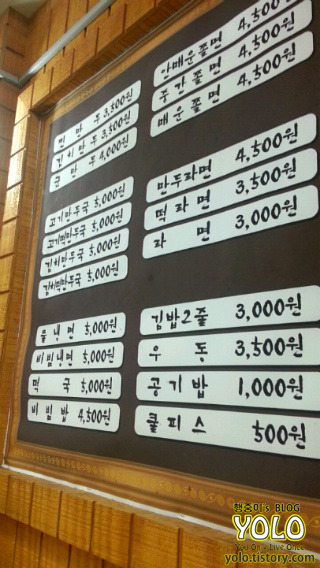 찐만두 3,500원
김치만두 3,500원
군만두 4,000원
고기만두국 5,000원
고기떡만두국 5,000원
김치만두국 5,000원
김치떡만두국 5,000원
물냉면 5,000원
비빔냉면 5,000원
떡국 5,000원
비빔밥 4,500원
아매운쫄면 4,500원
주간쫄면 4,500원
매운쫄면 4,500원
만두라면 4,500원
떡라면 3,500원
라면 3,000원
김밥2줄 3,000원
우동 3,500원
공기밥 1,000원
쿨피스 500원
행충이's BLOG
YOLO
You Only Live Once
yolo.tistory.com